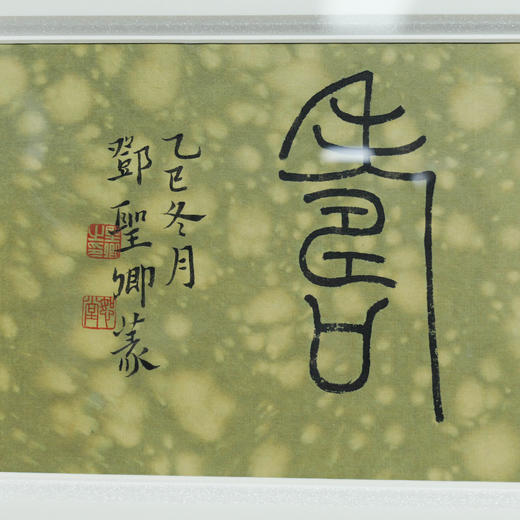 壽
乙巳冬月
鄧聖卿篆